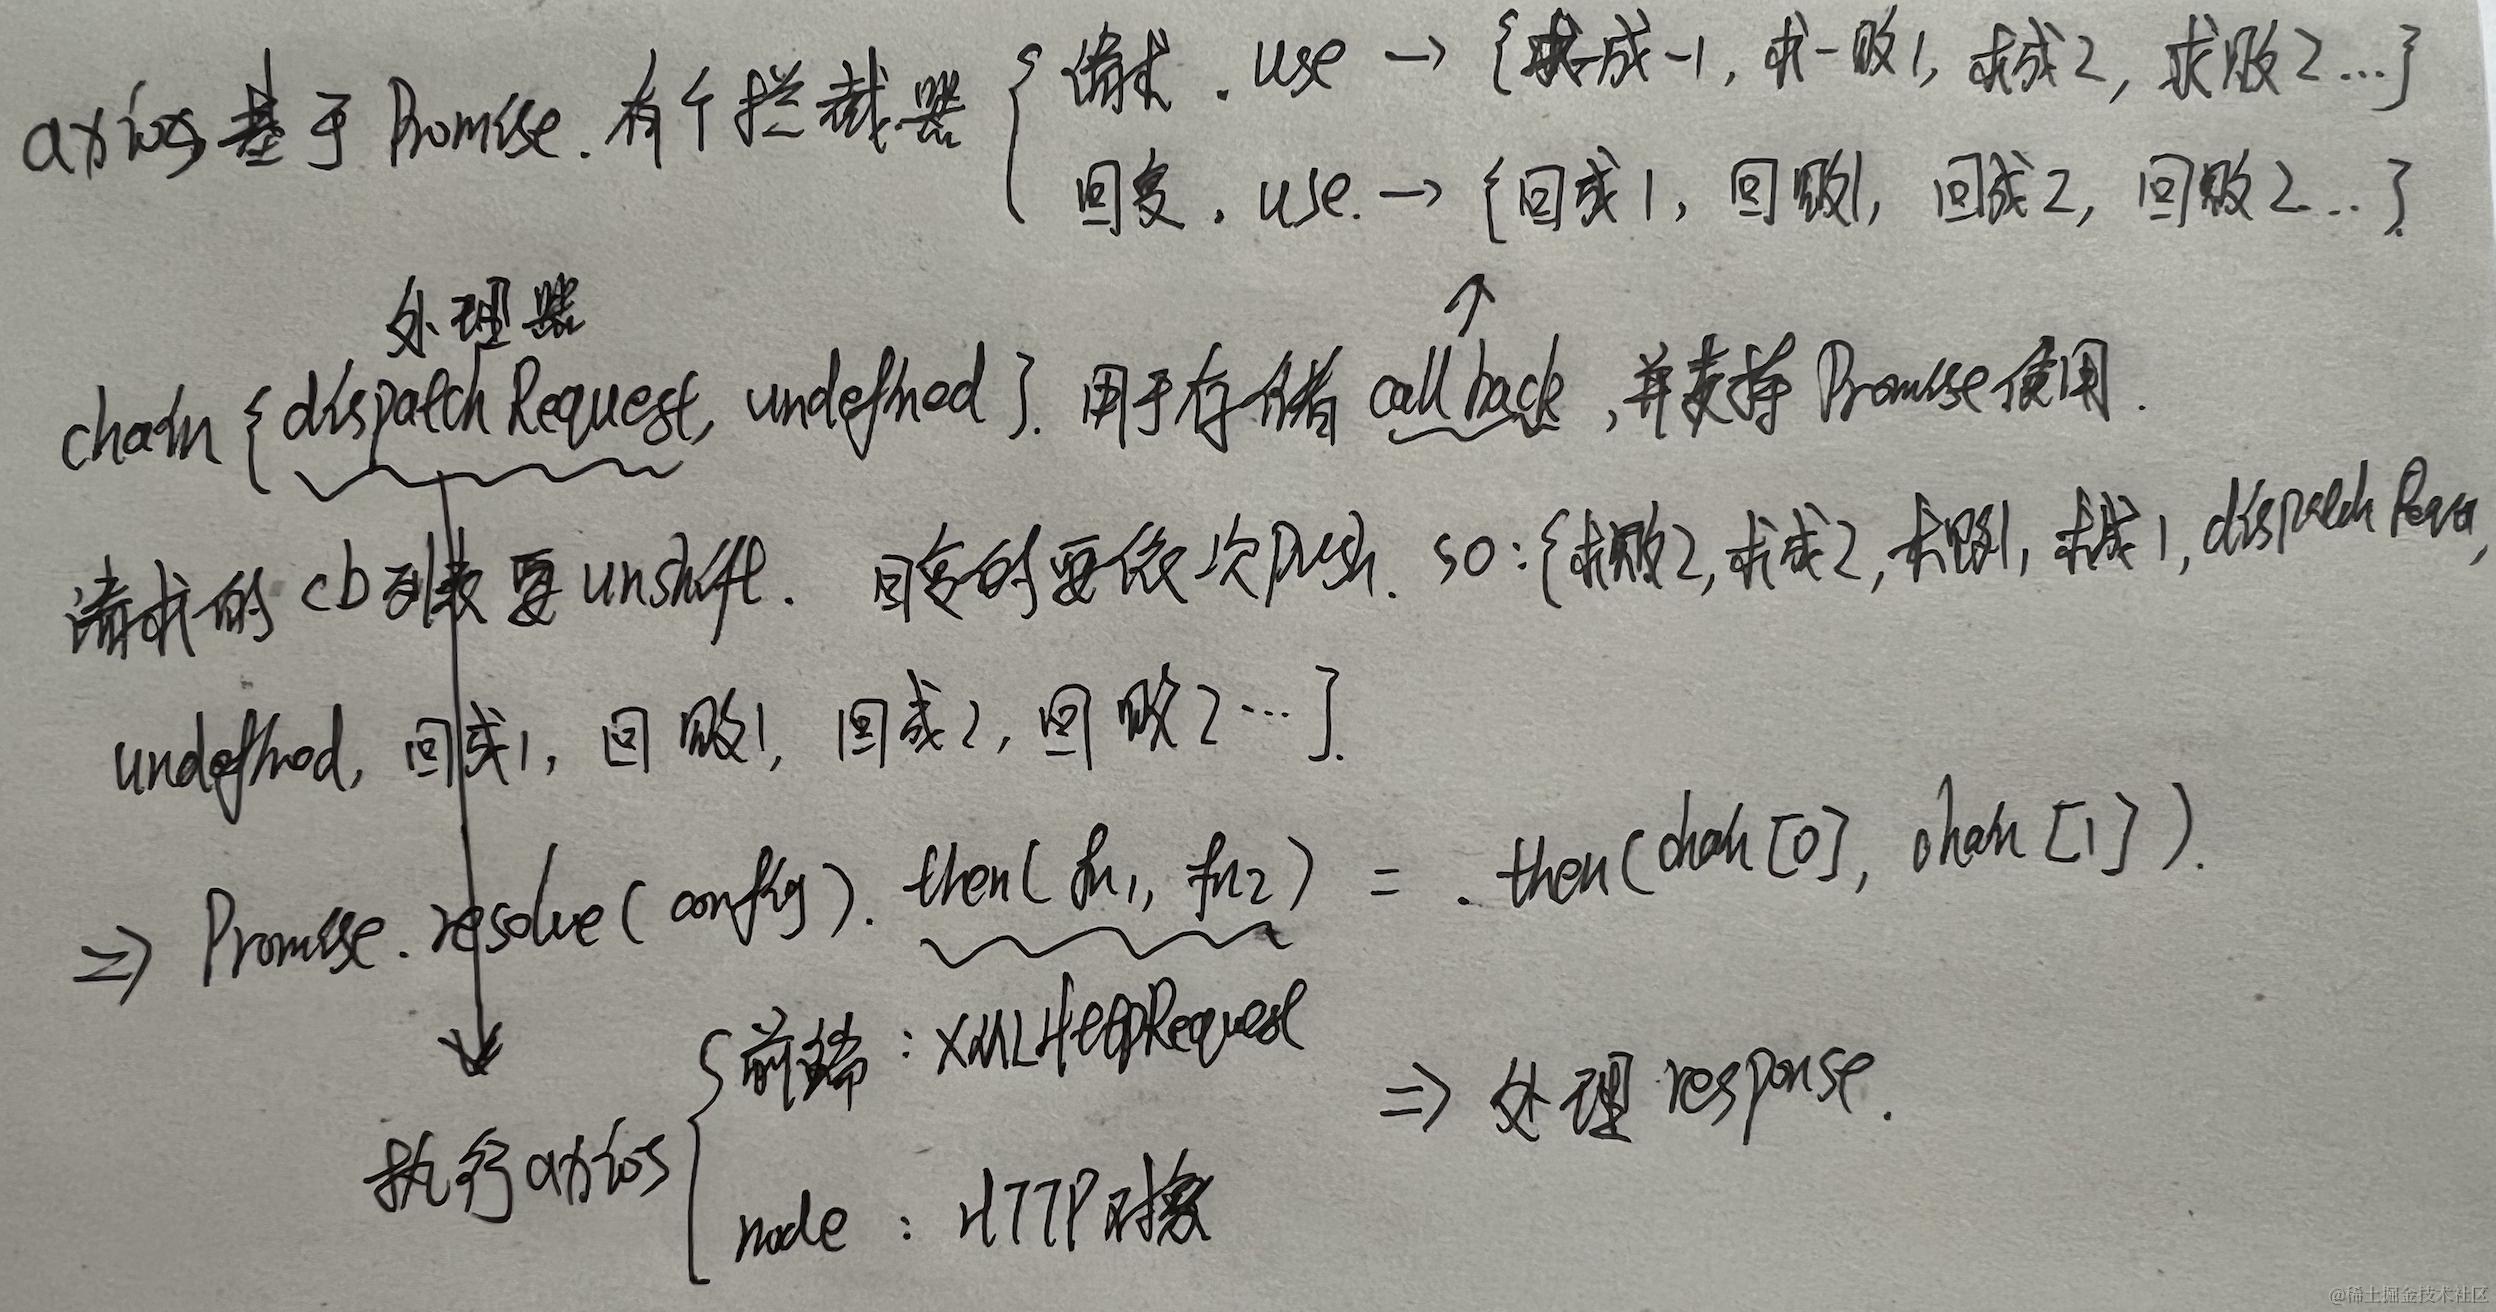 axios基于Promise.有个拦截器{请求.use → {求-成-1, 求-败1, 求成2, 求败2...}
回复.use.→ {回成1, 回败1, 回成2, 回败2...}.
处理器
chain{dispatchRequest, undefined}. 用于存储callback,并支持Promise使用.
请求的cb列表要unshift. 回复的要依次push. so:{求败2,求成2,求败1,求成1,dispatch
undefined, 回成1, 回败1, 回成2, 回败2...}.
⇒ Promise.resolve(config).then(fn1, fn2) = .then(chain[0], chain[1]).
{前端:XMLHttpRequest
⇒ 处理response.
执行axios
node:HTTP对象
@稀土掘金技术社区